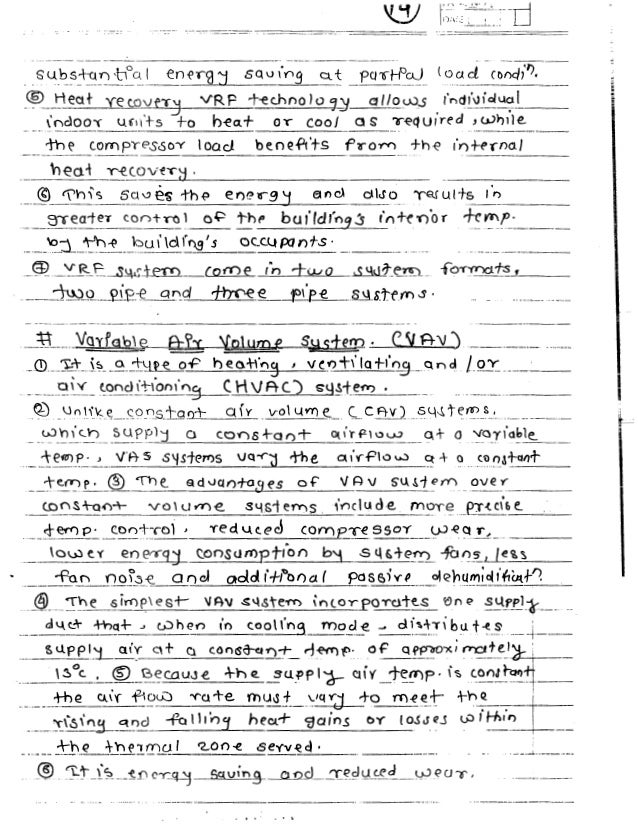 19
DATE
substantial energy saving at partial load condiⁿ.
⑤ Heat recovery VRF technology allows individual
indoor units to heat or cool as required, while
the compressor load benefits from the internal
heat recovery.
⑥ This saves the energy and also results in
greater control of the building's interior temp.
by the building's occupants.
⑦ VRF system come in two system formats,
two pipe and three pipe systems.
# Variable Air Volume System. (VAV)
① It is a type of heating, ventilating and /or
air conditioning (HVAC) system.
② Unlike constant air volume (CAV) systems,
which supply a constant airflow at a variable
temp., VAS systems vary the airflow at a constant
temp. ③ The advantages of VAV system over
constant volume systems include more precise
temp. control, reduced compressor wear,
lower energy consumption by system fans, less
fan noise and additional passive dehumidificatⁿ.
④ The simplest VAV system incorporates one supply
duct that, when in cooling mode, distributes
supply air at a constant temp. of approximately
13°c. ⑤ Because the supply air temp. is constant
the air flow rate must vary to meet the
rising and falling heat gains or losses within
the thermal zone served.
⑥ It is energy saving and reduced wear.